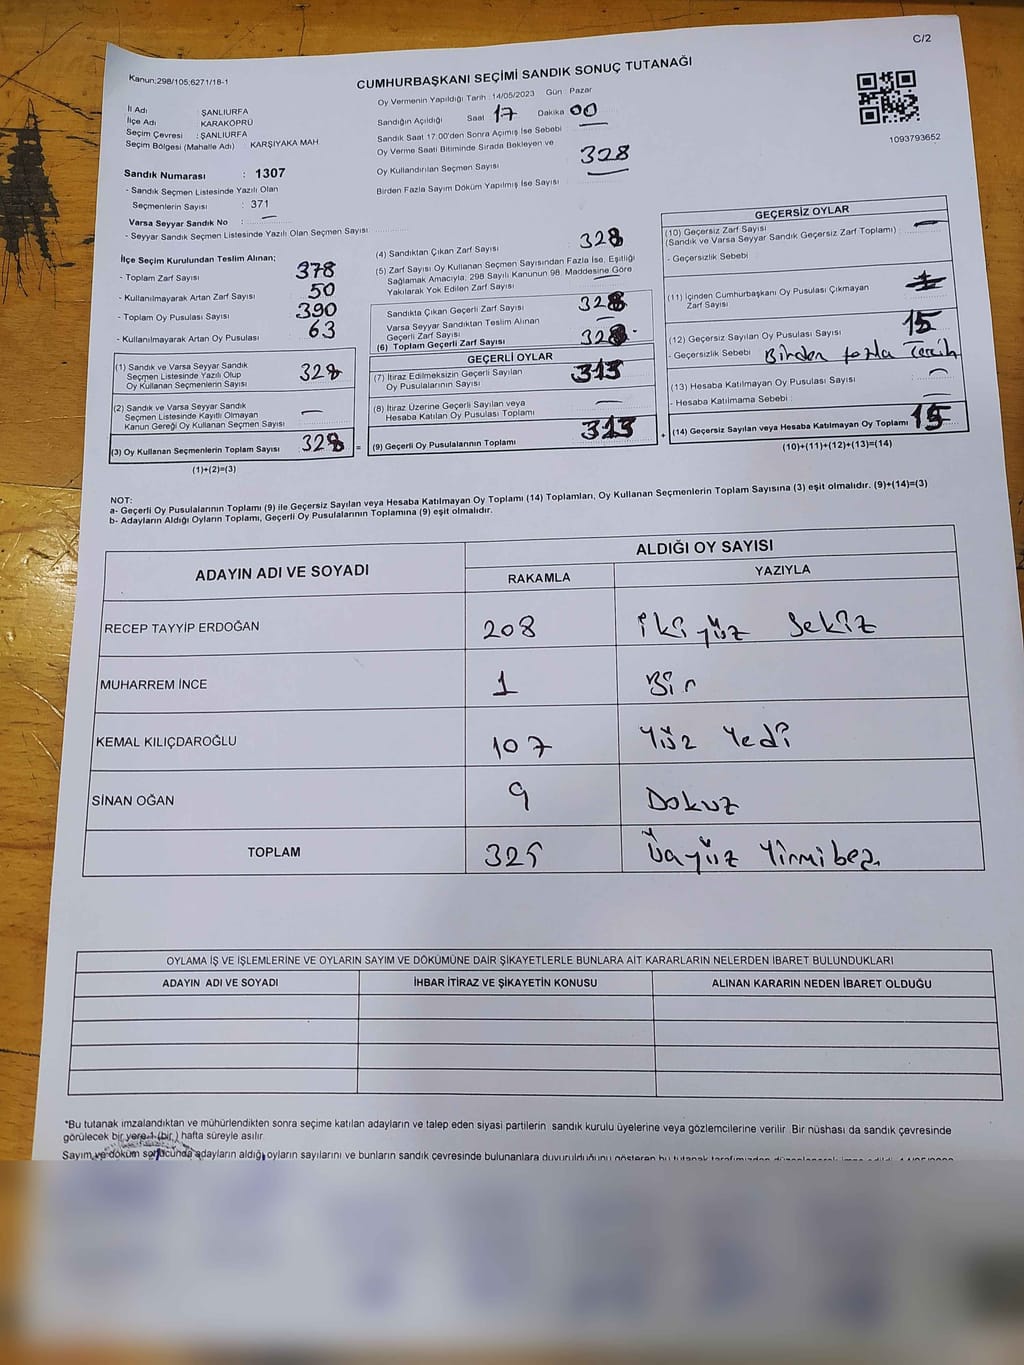 C/2
Kanun;298/105;6271/18-1
CUMHURBAŞKANI SEÇİMİ SANDIK SONUÇ TUTANAĞI
Oy Vermenin Yapıldığı Tarih : 14/05/2023 Gün : Pazar
İl Adı : ŞANLIURFA
İlçe Adı : KARAKÖPRÜ
Seçim Çevresi : ŞANLIURFA
Seçim Bölgesi (Mahalle Adı) KARŞIYAKA MAH
Sandığın Açıldığı Saat 17 Dakika 00
Sandık Saat 17:00'den Sonra Açımış İse Sebebi
Oy Verme Saati Bitiminde Sırada Bekleyen ve
Oy Kullandırılan Seçmen Sayısı 328
Birden Fazla Sayım Döküm Yapılmış İse Sayısı
1093793652
Sandık Numarası : 1307
- Sandık Seçmen Listesinde Yazılı Olan
Seçmenlerin Sayısı : 371
Varsa Seyyar Sandık No : —
- Seyyar Sandık Seçmen Listesinde Yazılı Olan Seçmen Sayısı
İlçe Seçim Kurulundan Teslim Alınan;
- Toplam Zarf Sayısı 378
- Kullanılmayarak Artan Zarf Sayısı 50
- Toplam Oy Pusulası Sayısı 390
- Kullanılmayarak Artan Oy Pusulası 63
(1) Sandık ve Varsa Seyyar Sandık
Seçmen Listesinde Yazılı Olup
Oy Kullanan Seçmenlerin Sayısı 328
(2) Sandık ve Varsa Seyyar Sandık
Seçmen Listesinde Kayıtlı Olmayan
Kanun Gereği Oy Kullanan Seçmen Sayısı —
(3) Oy Kullanan Seçmenlerin Toplam Sayısı 328 =
(1)+(2)=(3)
(4) Sandıktan Çıkan Zarf Sayısı 328
(5) Zarf Sayısı Oy Kullanan Seçmen Sayısından Fazla İse, Eşitliği
Sağlamak Amacıyla; 298 Sayılı Kanunun 98. Maddesine Göre
Yakılarak Yok Edilen Zarf Sayısı —
Sandıkta Çıkan Geçerli Zarf Sayısı 328
Varsa Seyyar Sandıktan Teslim Alınan
Geçerli Zarf Sayısı —
(6) Toplam Geçerli Zarf Sayısı 328
GEÇERLİ OYLAR
(7) İtiraz Edilmeksizin Geçerli Sayılan
Oy Pusulalarının Sayısı 313
(8) İtiraz Üzerine Geçerli Sayılan veya
Hesaba Katılan Oy Pusulası Toplamı —
(9) Geçerli Oy Pusulalarının Toplamı 313 +
GEÇERSİZ OYLAR
(10) Geçersiz Zarf Sayısı —
(Sandık ve Varsa Seyyar Sandık Geçersiz Zarf Toplamı)
- Geçersizlik Sebebi
(11) İçinden Cumhurbaşkanı Oy Pusulası Çıkmayan
Zarf Sayısı
(12) Geçersiz Sayılan Oy Pusulası Sayısı 15
- Geçersizlik Sebebi Birden fazla Tercih
(13) Hesaba Katılmayan Oy Pusulası Sayısı —
- Hesaba Katılmama Sebebi :
(14) Geçersiz Sayılan veya Hesaba Katılmayan Oy Toplamı 15
(10)+(11)+(12)+(13)=(14)
NOT:
a- Geçerli Oy Pusulalarının Toplamı (9) ile Geçersiz Sayılan veya Hesaba Katılmayan Oy Toplamı (14) Toplamları, Oy Kullanan Seçmenlerin Toplam Sayısına (3) eşit olmalıdır. (9)+(14)=(3)
b- Adayların Aldığı Oyların Toplamı, Geçerli Oy Pusulalarının Toplamına (9) eşit olmalıdır.
ADAYIN ADI VE SOYADI
ALDIĞI OY SAYISI
RAKAMLA YAZIYLA
RECEP TAYYİP ERDOĞAN 208 iki yüz sekiz
MUHARREM İNCE 1 Bir
KEMAL KILIÇDAROĞLU 107 Yüz Yedi
SİNAN OĞAN 9 Dokuz
TOPLAM 325 Üçyüz Yirmibeş
OYLAMA İŞ VE İŞLEMLERİNE VE OYLARIN SAYIM VE DÖKÜMÜNE DAİR ŞİKAYETLERLE BUNLARA AİT KARARLARIN NELERDEN İBARET BULUNDUKLARI
ADAYIN ADI VE SOYADI İHBAR İTİRAZ VE ŞİKAYETİN KONUSU ALINAN KARARIN NEDEN İBARET OLDUĞU
*Bu tutanak imzalandıktan ve mühürlendikten sonra seçime katılan adayların ve talep eden siyasi partilerin sandık kurulu üyelerine veya gözlemcilerine verilir. Bir nüshası da sandık çevresinde
görülecek bir yere 1 (bir ) hafta süreyle asılır.
Sayım ve döküm sonucunda adayların aldığı oyların sayılarını ve bunların sandık çevresinde bulunanlara duyurulduğunu gösteren bu tutanak tarafımızdan